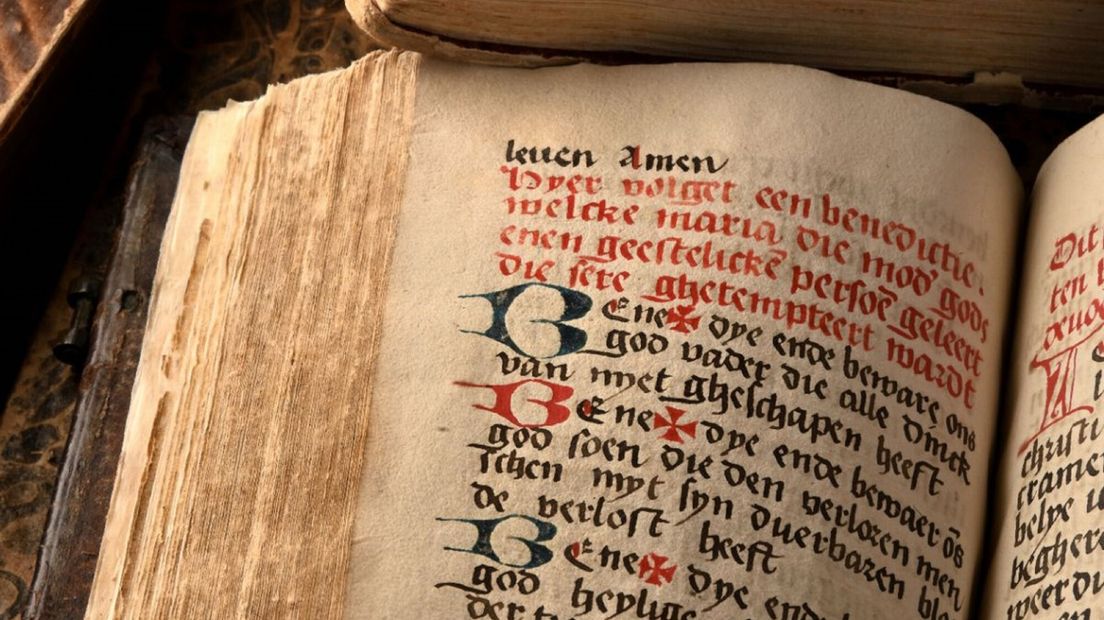 leuen Amen
Hyer volget een benedictie
welcke maria die mod' gods
enen geestelickē persoē geleert
die sere ghetempteert wardt
BEne✠dye ende beware ons
god vader die alle dinck
van nyet gheschapen heeft
BEne✠dye ende bewaer ōs
god soen die den verloren men
schen myt syn duerbaren blo
de verlost heeft
BEne✠dye ende
god heylige
der
Dit
ten
christi
cramen
helpe
beghere
weerdi